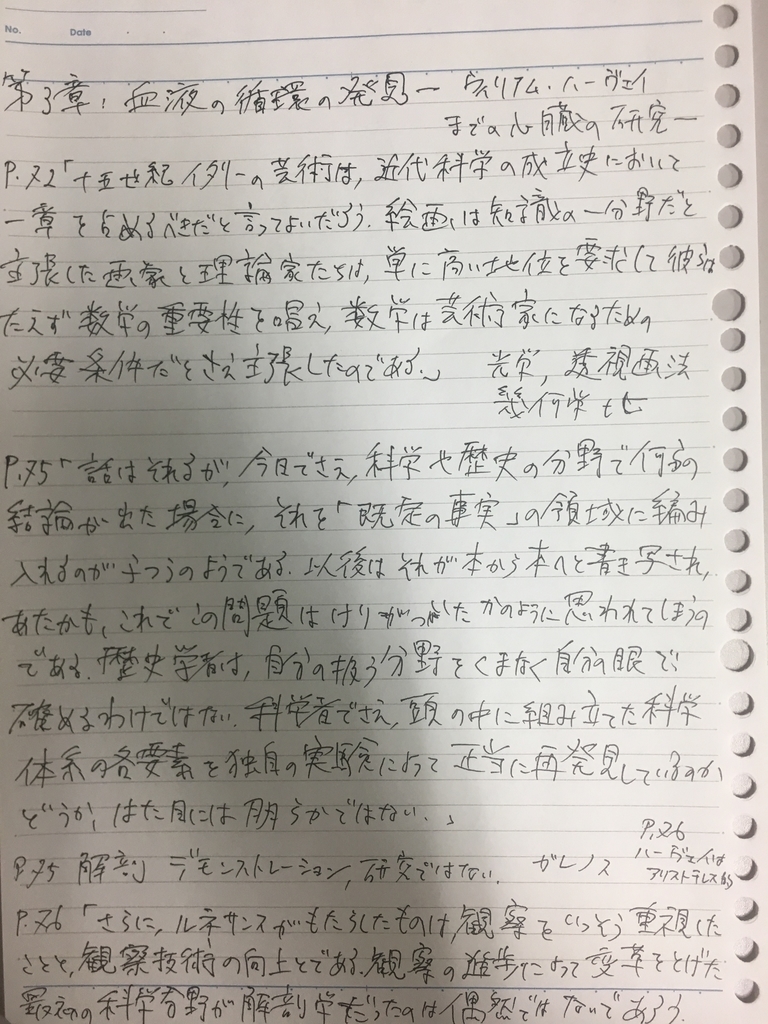 No.
Date
第3章: 血液の循環の発見 ― ウィリアム・ハーヴェイ
までの心臓の研究 ―
P.72「十五世紀イタリーの芸術は, 近代科学の成立史において
一章を占めるべきだと言ってよいだろう. 絵画は知識の一分野だと
主張した画家と理論家たちは, 単に高い地位を要求して 彼らは
たえず数学の重要性を唱え, 数学は芸術家になるための
必要条件だとさえ主張したのである.」 光学, 透視画法
幾何学
P.75「話はそれるが, 今日でさえ, 科学や歴史の分野で何らの
結論が出た場合に, それを「既定の事実」の領域に編み
入れるのがふつうのようである. 以後はそれが本から本へと書き写され,
あたかも, これでこの問題はけりがついたかのように思われてしまうの
である. 歴史学者は, 自分の扱う分野をくまなく自分の眼で
確めるわけではない. 科学者でさえ, 頭の中に組み立てた科学
体系の各要素を独自の実験によって正当に再発見しているのか
どうか, はた目には明らかではない.」
P.75 解剖 デモンストレーション, 研究ではない. ガレノス
P.76
ハーヴェイは
アリストテレス
P.76「さらに, ルネサンスがもたらしたものは, 観察をいっそう重視した
ことと, 観察技術の向上とである. 観察の進歩によって変革をとげた
最初の科学分野が解剖学だったのは偶然ではないであろう.